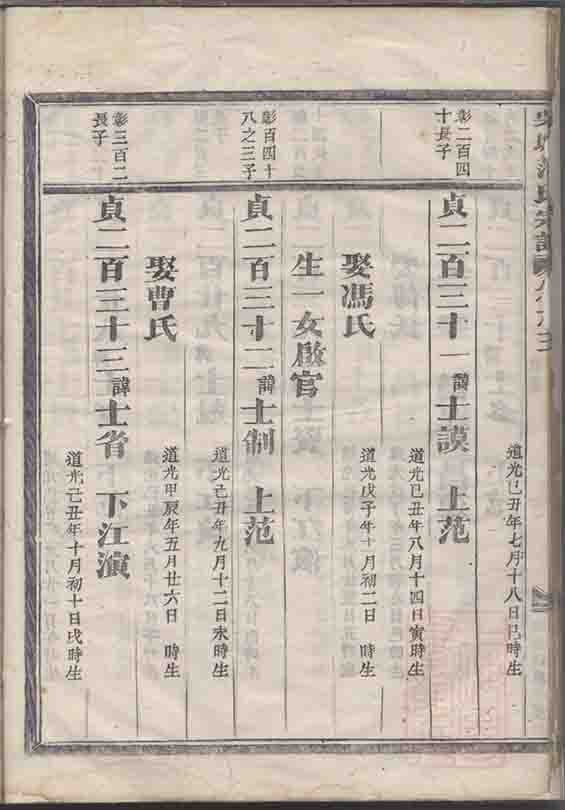 道光己丑年七月十八日巳時生
彰二百四
十長子
貞二百三十一諱士謨 上范
道光己丑年八月十四日寅時生
娶馮氏
道光戊子年十月初二日 時生
生一女啟官
彰百四十
八之三子
貞二百三十二諱士制 上范
道光己丑年九月十二日未時生
娶曹氏
道光甲辰年五月廿六日 時生
彰三百二
長子
貞二百三十三諱士省 下江演
道光己丑年十月初十日戌時生